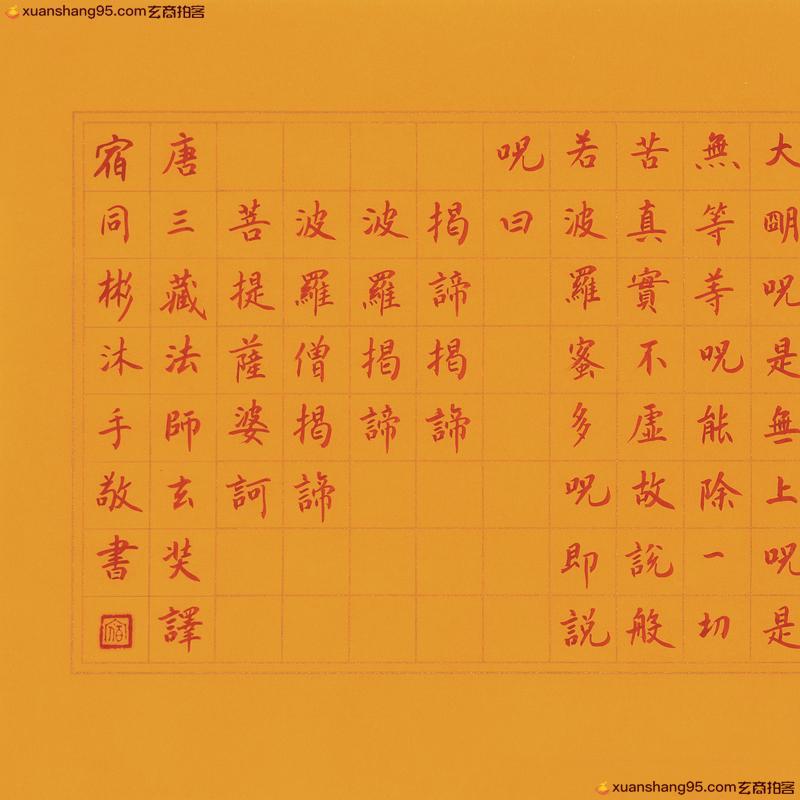 xuanshang95.com玄商拍客
大明呪是無上呪是
無等等呪能除一切
苦真實不虛故說般
若波羅蜜多呪即說
呪曰
揭諦揭諦
波羅揭諦
波羅僧揭諦
菩提薩婆訶
唐三藏法師玄奘譯
宿同彬沐手敬書
xuanshang95.com玄商拍客